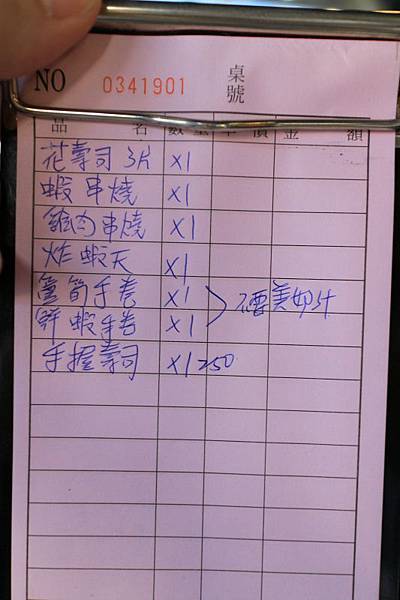 NO 0341901 桌號
品名 數量 單價 金額
花壽司 3片 x1
蝦串燒 x1
雞肉串燒 x1
炸蝦天 x1
蘆筍手卷 x1
鮮蝦手卷 x1
不要美奶汁
手握壽司 x1 250